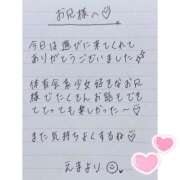 お兄様へ♡
今日は遊びに来てくれて
ありがとうございました
体育会系少女好きなお兄
様でたくさんお話もでき
てとっても楽しかった〜♡
また気持ちよくするね♡
えまより